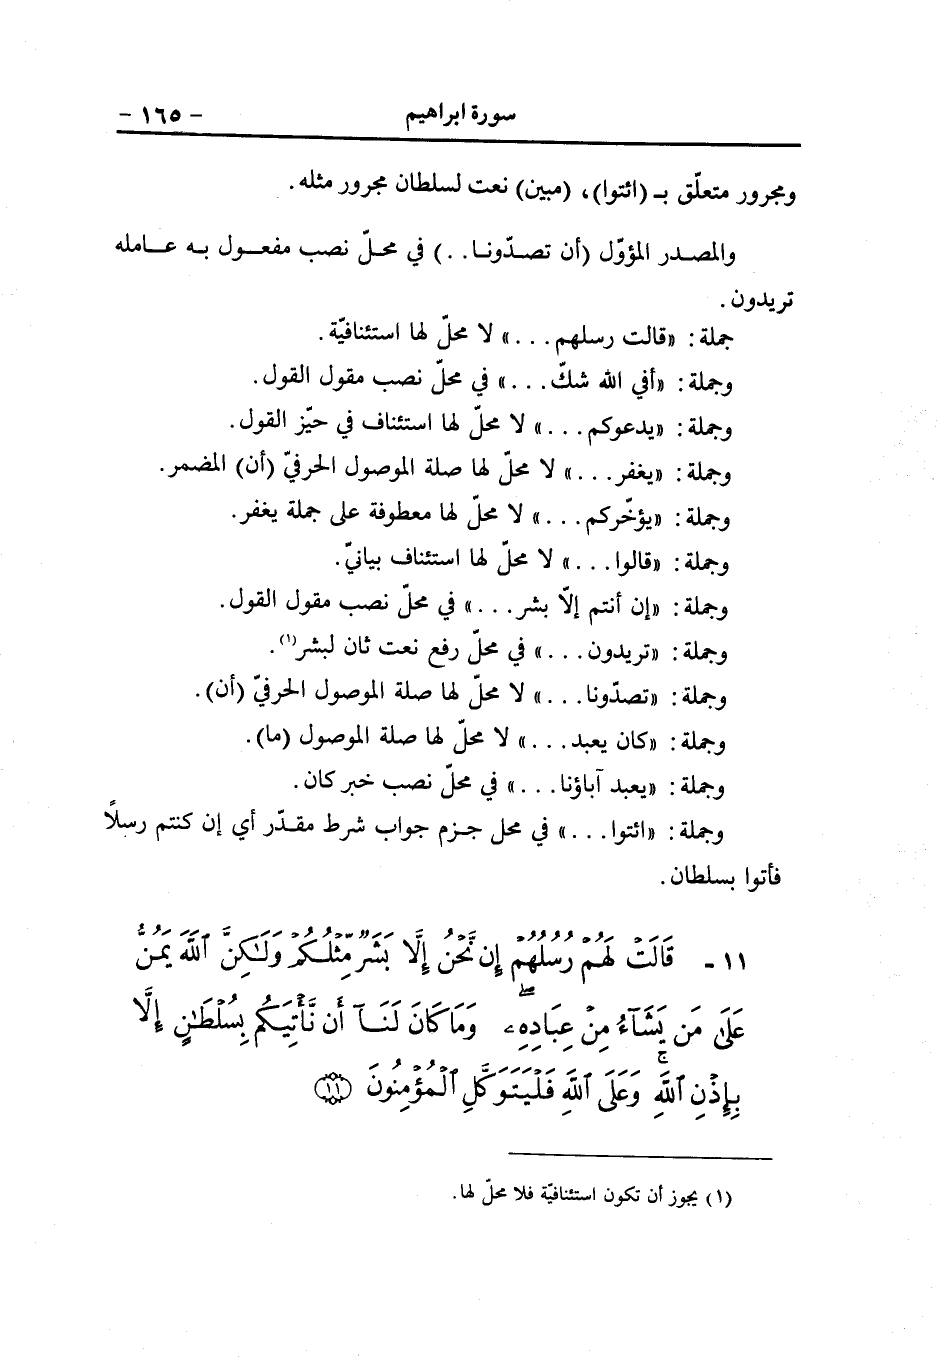 سورة ابراهيم - ١٦٥ -
ومجرور متعلّق بـ (ائتوا)، (مبين) نعت لسلطان مجرور مثله.
والمصـدر المؤوّل (أن تصـدّونـا. .) في محـلّ نصب مفعـول بـه عـامله
تريدون.
جملة: «قالت رسلهم. . .» لا محلّ لها استئنافيّة.
وجملة: «أفي الله شكّ. . .» في محلّ نصب مقول القول.
وجملة: «يدعوكم. . .» لا محلّ لها استئناف في حيّز القول.
وجملة: «يغفر. . .» لا محلّ لها صلة الموصول الحرفيّ (أن) المضمر.
وجملة: «يؤخّركم. . .» لا محلّ لها معطوفة على جملة يغفر.
وجملة: «قالوا. . .» لا محلّ لها استئناف بيانيّ.
وجملة: «إن أنتم إلّا بشر. . .» في محلّ نصب مقول القول.
وجملة: «تريدون. . .» في محلّ رفع نعت ثان لبشر(١).
وجملة: «تصدّونا. . .» لا محلّ لها صلة الموصول الحرفيّ (أن).
وجملة: «كان يعبد. . .» لا محلّ لها صلة الموصول (ما).
وجملة: «يعبد آباؤنا. . .» في محلّ نصب خبر كان.
وجملة: «ائتوا. . .» في محل جـزم جواب شرط مقـدّر أي إن كنتم رسلاً
فأتوا بسلطان.
١١ - قَالَتْ لَهُمْ رُسُلُهُمْ إِن نَّحْنُ إِلَّا بَشَرٌ مِّثْلُكُمْ وَلَٰكِنَّ ٱللَّهَ يَمُنُّ
عَلَىٰ مَن يَشَآءُ مِنْ عِبَادِهِۦ ۖ وَمَا كَانَ لَنَآ أَن نَّأْتِيَكُم بِسُلْطَٰنٍ إِلَّا
بِإِذْنِ ٱللَّهِ ۚ وَعَلَى ٱللَّهِ فَلْيَتَوَكَّلِ ٱلْمُؤْمِنُونَ ﴿١١﴾
(١) يجوز أن تكون استئنافيّة فلا محلّ لها.